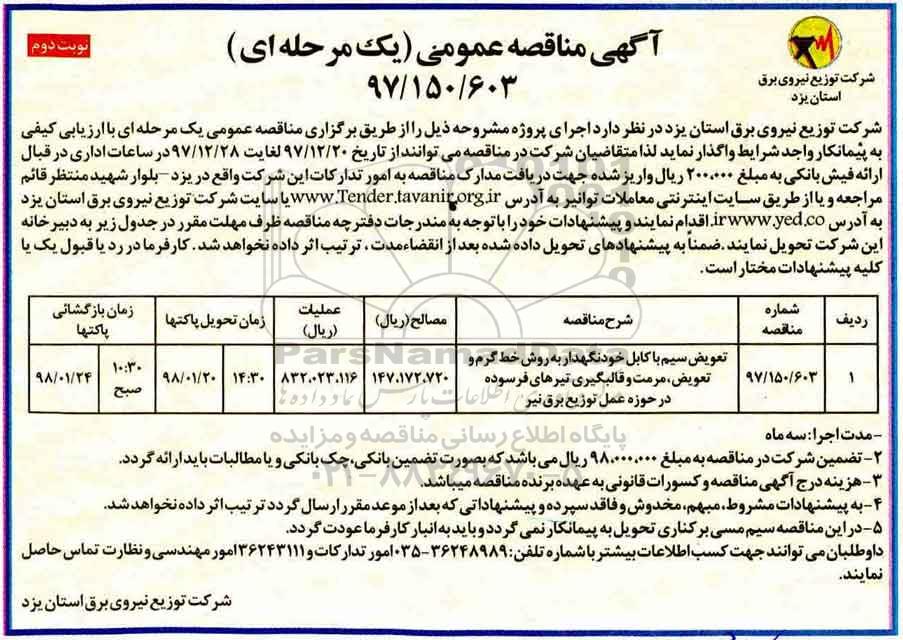 نوبت دوم
آگهی مناقصه عمومی (یک مرحله ای)
۹۷/۱۵۰/۶۰۳
شرکت توزیع نیروی برق
استان یزد
شرکت توزیع نیروی برق استان یزد در نظر دارد اجرای پروژه مشروحه ذیل را از طریق برگزاری مناقصه عمومی یک مرحله ای با ارزیابی کیفی
به پیمانکار واجد شرایط واگذار نماید لذا متقاضیان شرکت در مناقصه می توانند از تاریخ ۹۷/۱۲/۲۰ لغایت ۹۷/۱۲/۲۸ در ساعات اداری در قبال
ارائه فیش بانکی به مبلغ ۲۰۰،۰۰۰ ریال واریز شده جهت دریافت مدارک مناقصه به امور تدارکات این شرکت واقع در یزد – بلوار شهید منتظر قائم
مراجعه و یا از طریق سایت اینترنتی معاملات توانیر به آدرس www.Tender.tavanir.org.ir یا سایت شرکت توزیع نیروی برق استان یزد
به آدرس irwww.yed.co. اقدام نمایند و پیشنهادات خود را با توجه به مندرجات دفترچه مناقصه ظرف مهلت مقرر در جدول زیر به دبیرخانه
این شرکت تحویل نمایند. ضمناً به پیشنهادهای تحویل داده شده بعد از انقضاء مدت، ترتیب اثر داده نخواهد شد. کارفرما در رد یا قبول یک یا
کلیه پیشنهادات مختار است.
ردیف شماره مناقصه شرح مناقصه مصالح (ریال) عملیات (ریال) زمان تحویل پاکتها زمان بازگشائی پاکتها
۱ ۹۷/۱۵۰/۶۰۳ تعویض سیم با کابل خودنگهدار به روش خط گرم و
تعویض، مرمت و قالبگیری تیرهای فرسوده
در حوزه عمل توزیع برق نیر ۱۴۷.۱۷۲.۷۲۰ ۸۳۲.۰۲۳.۱۱۶ ۱۴:۳۰ ۹۸/۰۱/۲۰ ۱۰:۳۰ صبح ۹۸/۰۱/۲۴
ParsNamadData
پایگاه اطلاع رسانی مناقصه و مزایده
-مدت اجرا: سه ماه
۲- تضمین شرکت در مناقصه به مبلغ ۹۸،۰۰۰،۰۰۰ ریال می باشد که بصورت تضمین بانکی، چک بانکی و یا مطالبات باید ارائه گردد.
۳- هزینه درج آگهی مناقصه و کسورات قانونی به عهده برنده مناقصه میباشد.
۴- به پیشنهادات مشروط، مبهم، مخدوش و فاقد سپرده و پیشنهاداتی که بعد از موعد مقرر ارسال گردد ترتیب اثر داده نخواهد شد.
۵- در این مناقصه سیم مسی برکناری تحویل به پیمانکار نمی گردد و باید به انبار کارفرما عودت گردد.
داوطلبان می توانند جهت کسب اطلاعات بیشتر با شماره تلفن: ۳۶۲۴۸۹۸۹-۰۳۵ امور تدارکات و ۳۶۲۴۳۱۱۱ امور مهندسی و نظارت تماس حاصل
نمایند.
شرکت توزیع نیروی برق استان یزد